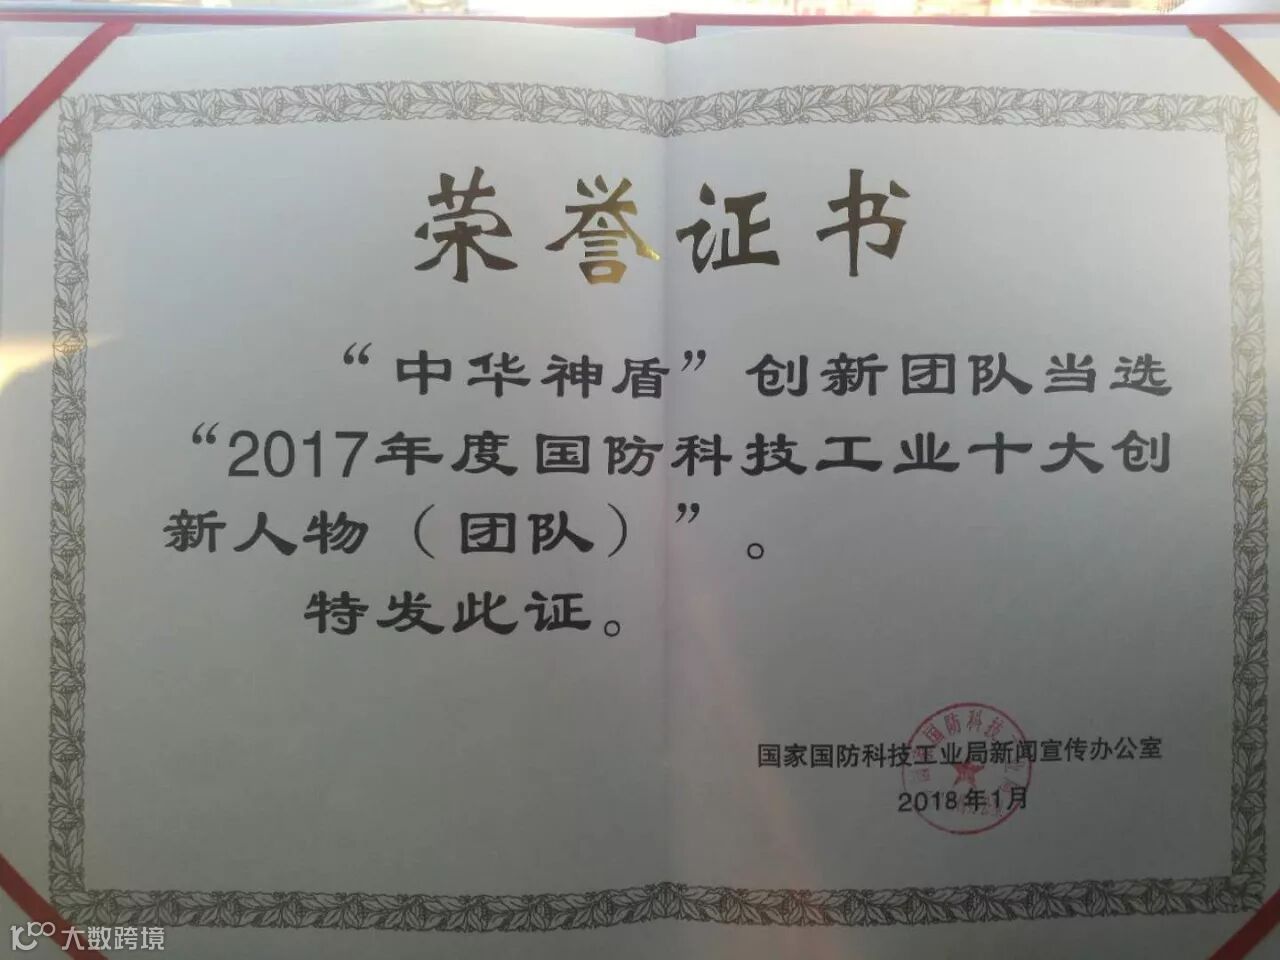 荣誉证书
“中华神盾”创新团队当选
“2017年度国防科技工业十大创
新人物（团队）”。
特发此证。
国家国防科技工业局新闻宣传办公室
2018年1月
大数跨境